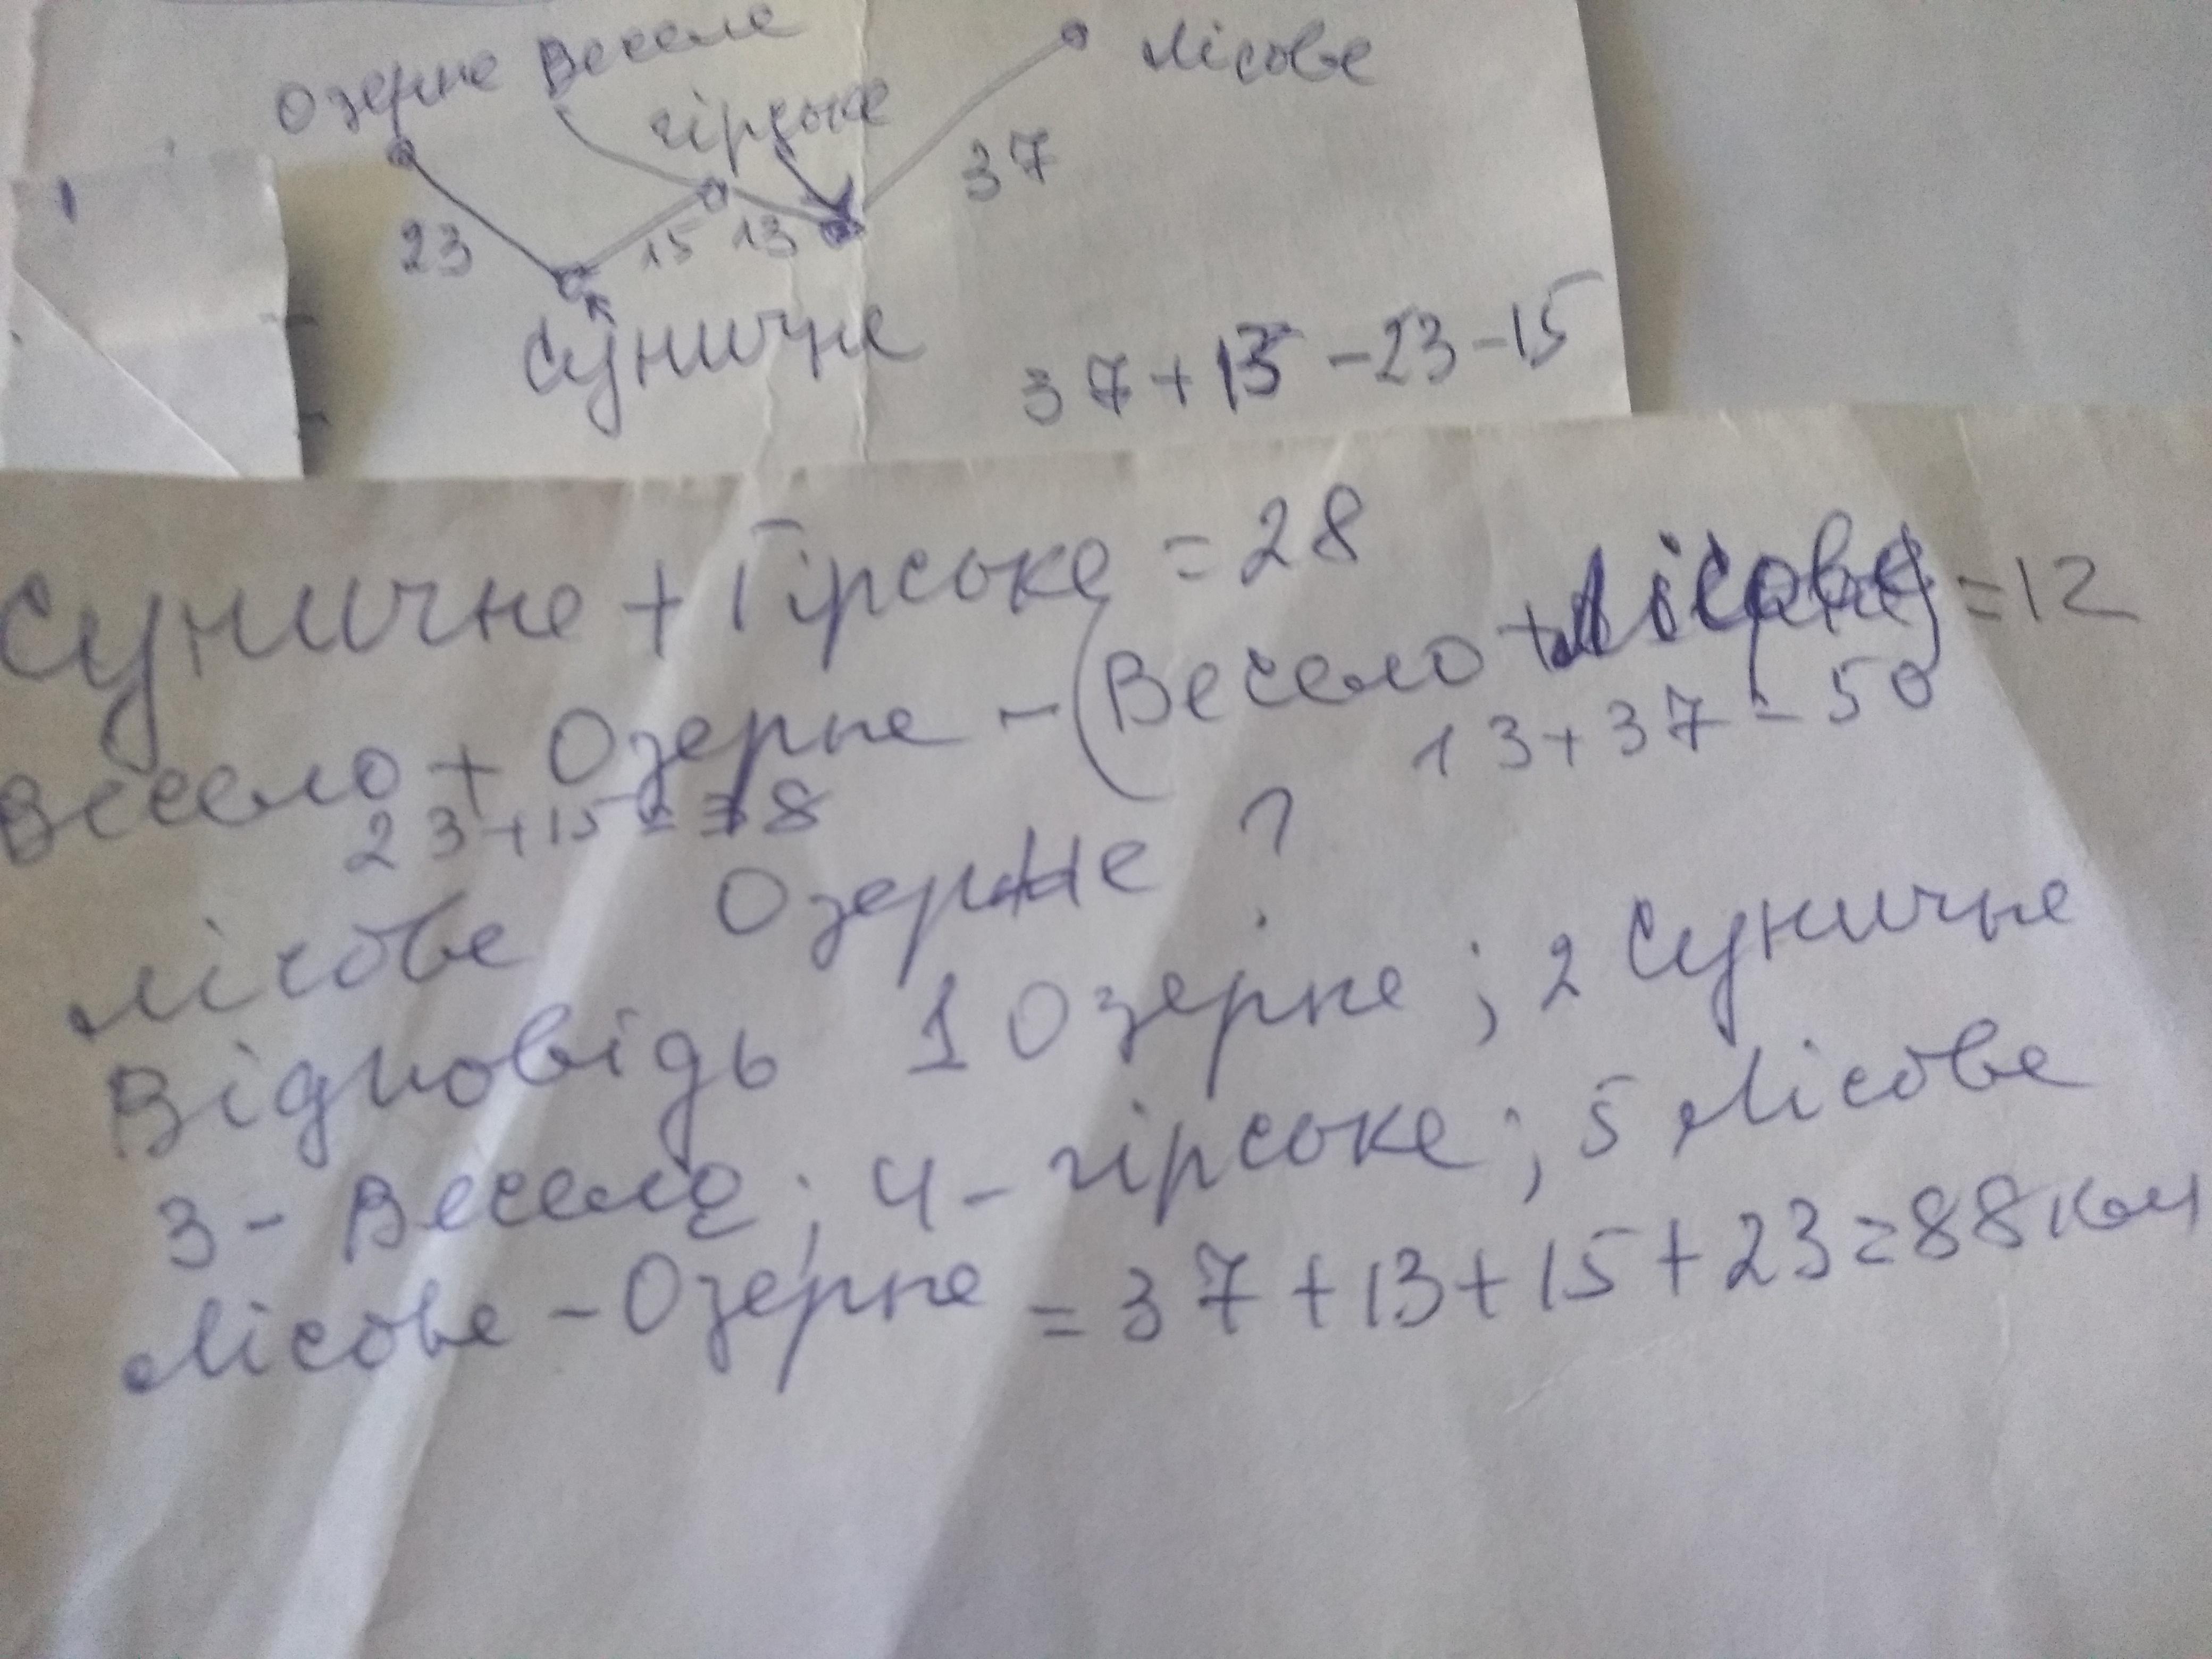 Озерне Веселе
гірське
Лісове
37
23
15 13
Суничне
37+13-23-15
Суничне + Гірське = 28
Весело + Озерне - (Весело + Лісове) = 12
23+15=38
13+37=50
Лісове Озерне ?
Відповідь 1 Озерне ; 2 Суничне
3 - Веселе ; 4 - гірське ; 5 Лісове
Лісове - Озерне = 37+13+15+23=88 км